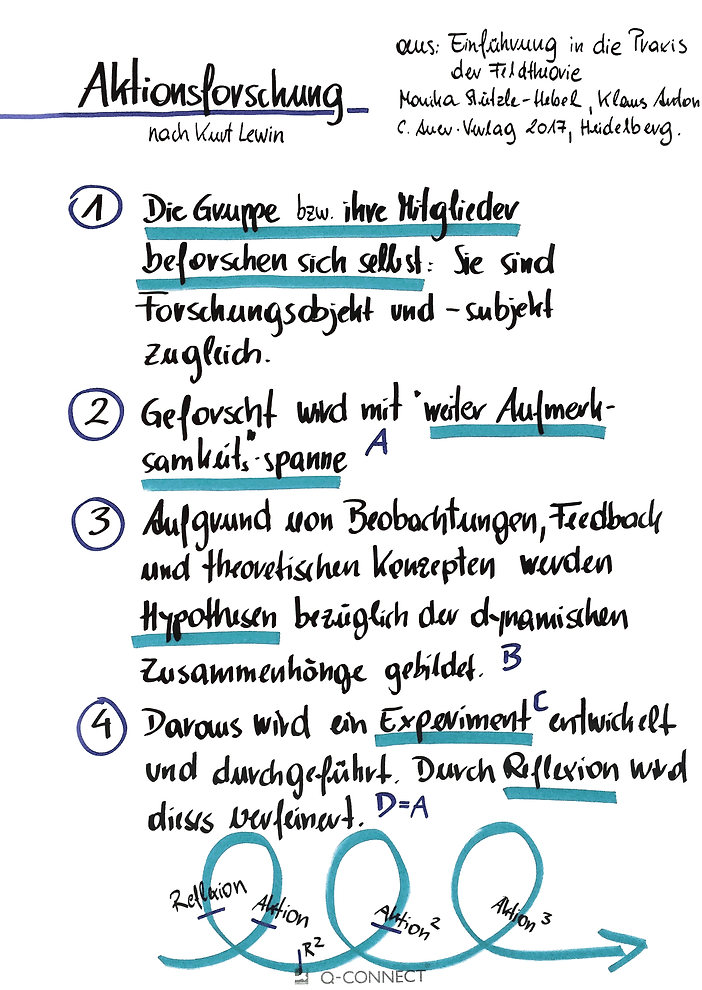 Aktionsforschung
nach Kurt Lewin
aus: Einführung in die Praxis
der Feldtheorie
Monika Stützle-Hebel, Klaus Antons
C. Auer-Verlag 2017, Heidelberg.
1 Die Gruppe bzw. ihre Mitglieder
beforschen sich selbst: Sie sind
Forschungsobjekt und -subjekt
zugleich.
2 Geforscht wird mit "weiter Aufmerk-
samkeits"-spanne A
3 Aufgrund von Beobachtungen, Feedback
und theoretischen Konzepten werden
Hypothesen bezüglich der dynamischen
Zusammenhänge gebildet. B
4 Daraus wird ein Experiment C entwickelt
und durchgeführt. Durch Reflexion wird
dieses verfeinert. D=A
Reflexion
Aktion
R²
Aktion²
Aktion³
Q-CONNECT